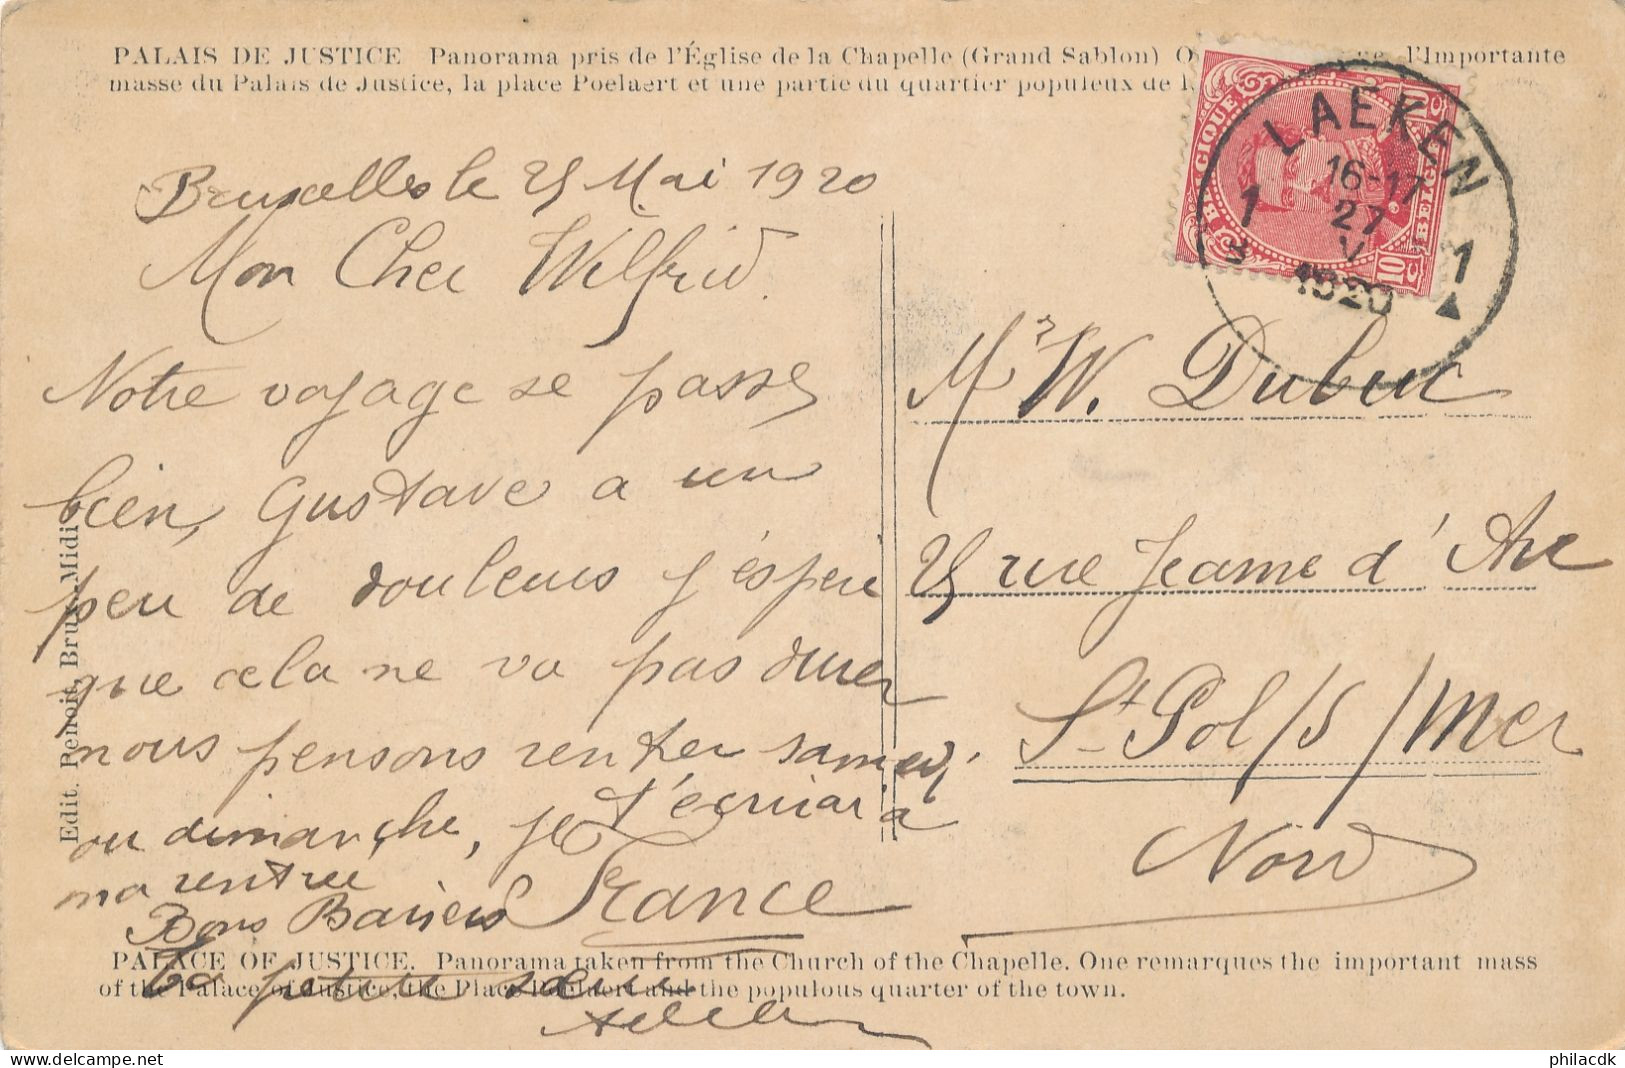 PALAIS DE JUSTICE Panorama pris de l'Église de la Chapelle (Grand Sablon) l'Importante
masse du Palais de Justice, la place Poelaert et une partie du quartier populeux de
BELGIQUE BELGIË
10 c
LAEKEN
1 1
16-17
27
V
1920
Bruxelles le 25 Mai 1920
Mon Cher Wilfrid.
Notre voyage se passe
bien, Gustave a un
peu de douleurs j'espere
que cela ne va pas durer
nous pensons rentrer samedi
ou dimanche, je t'écrirai à
ma rentree
Bons Baisers
France
Ta petite sœur
Mr W. Dubuc
25 rue Jeanne d'Arc
St Pol/s/Mer
Nord
Edit. Benoit, Brux. Midi
PALACE OF JUSTICE. Panorama taken from the Church of the Chapelle. One remarques the important mass
of the Palace of Justice, the Place Poelaert and the populous quarter of the town.
philacdk